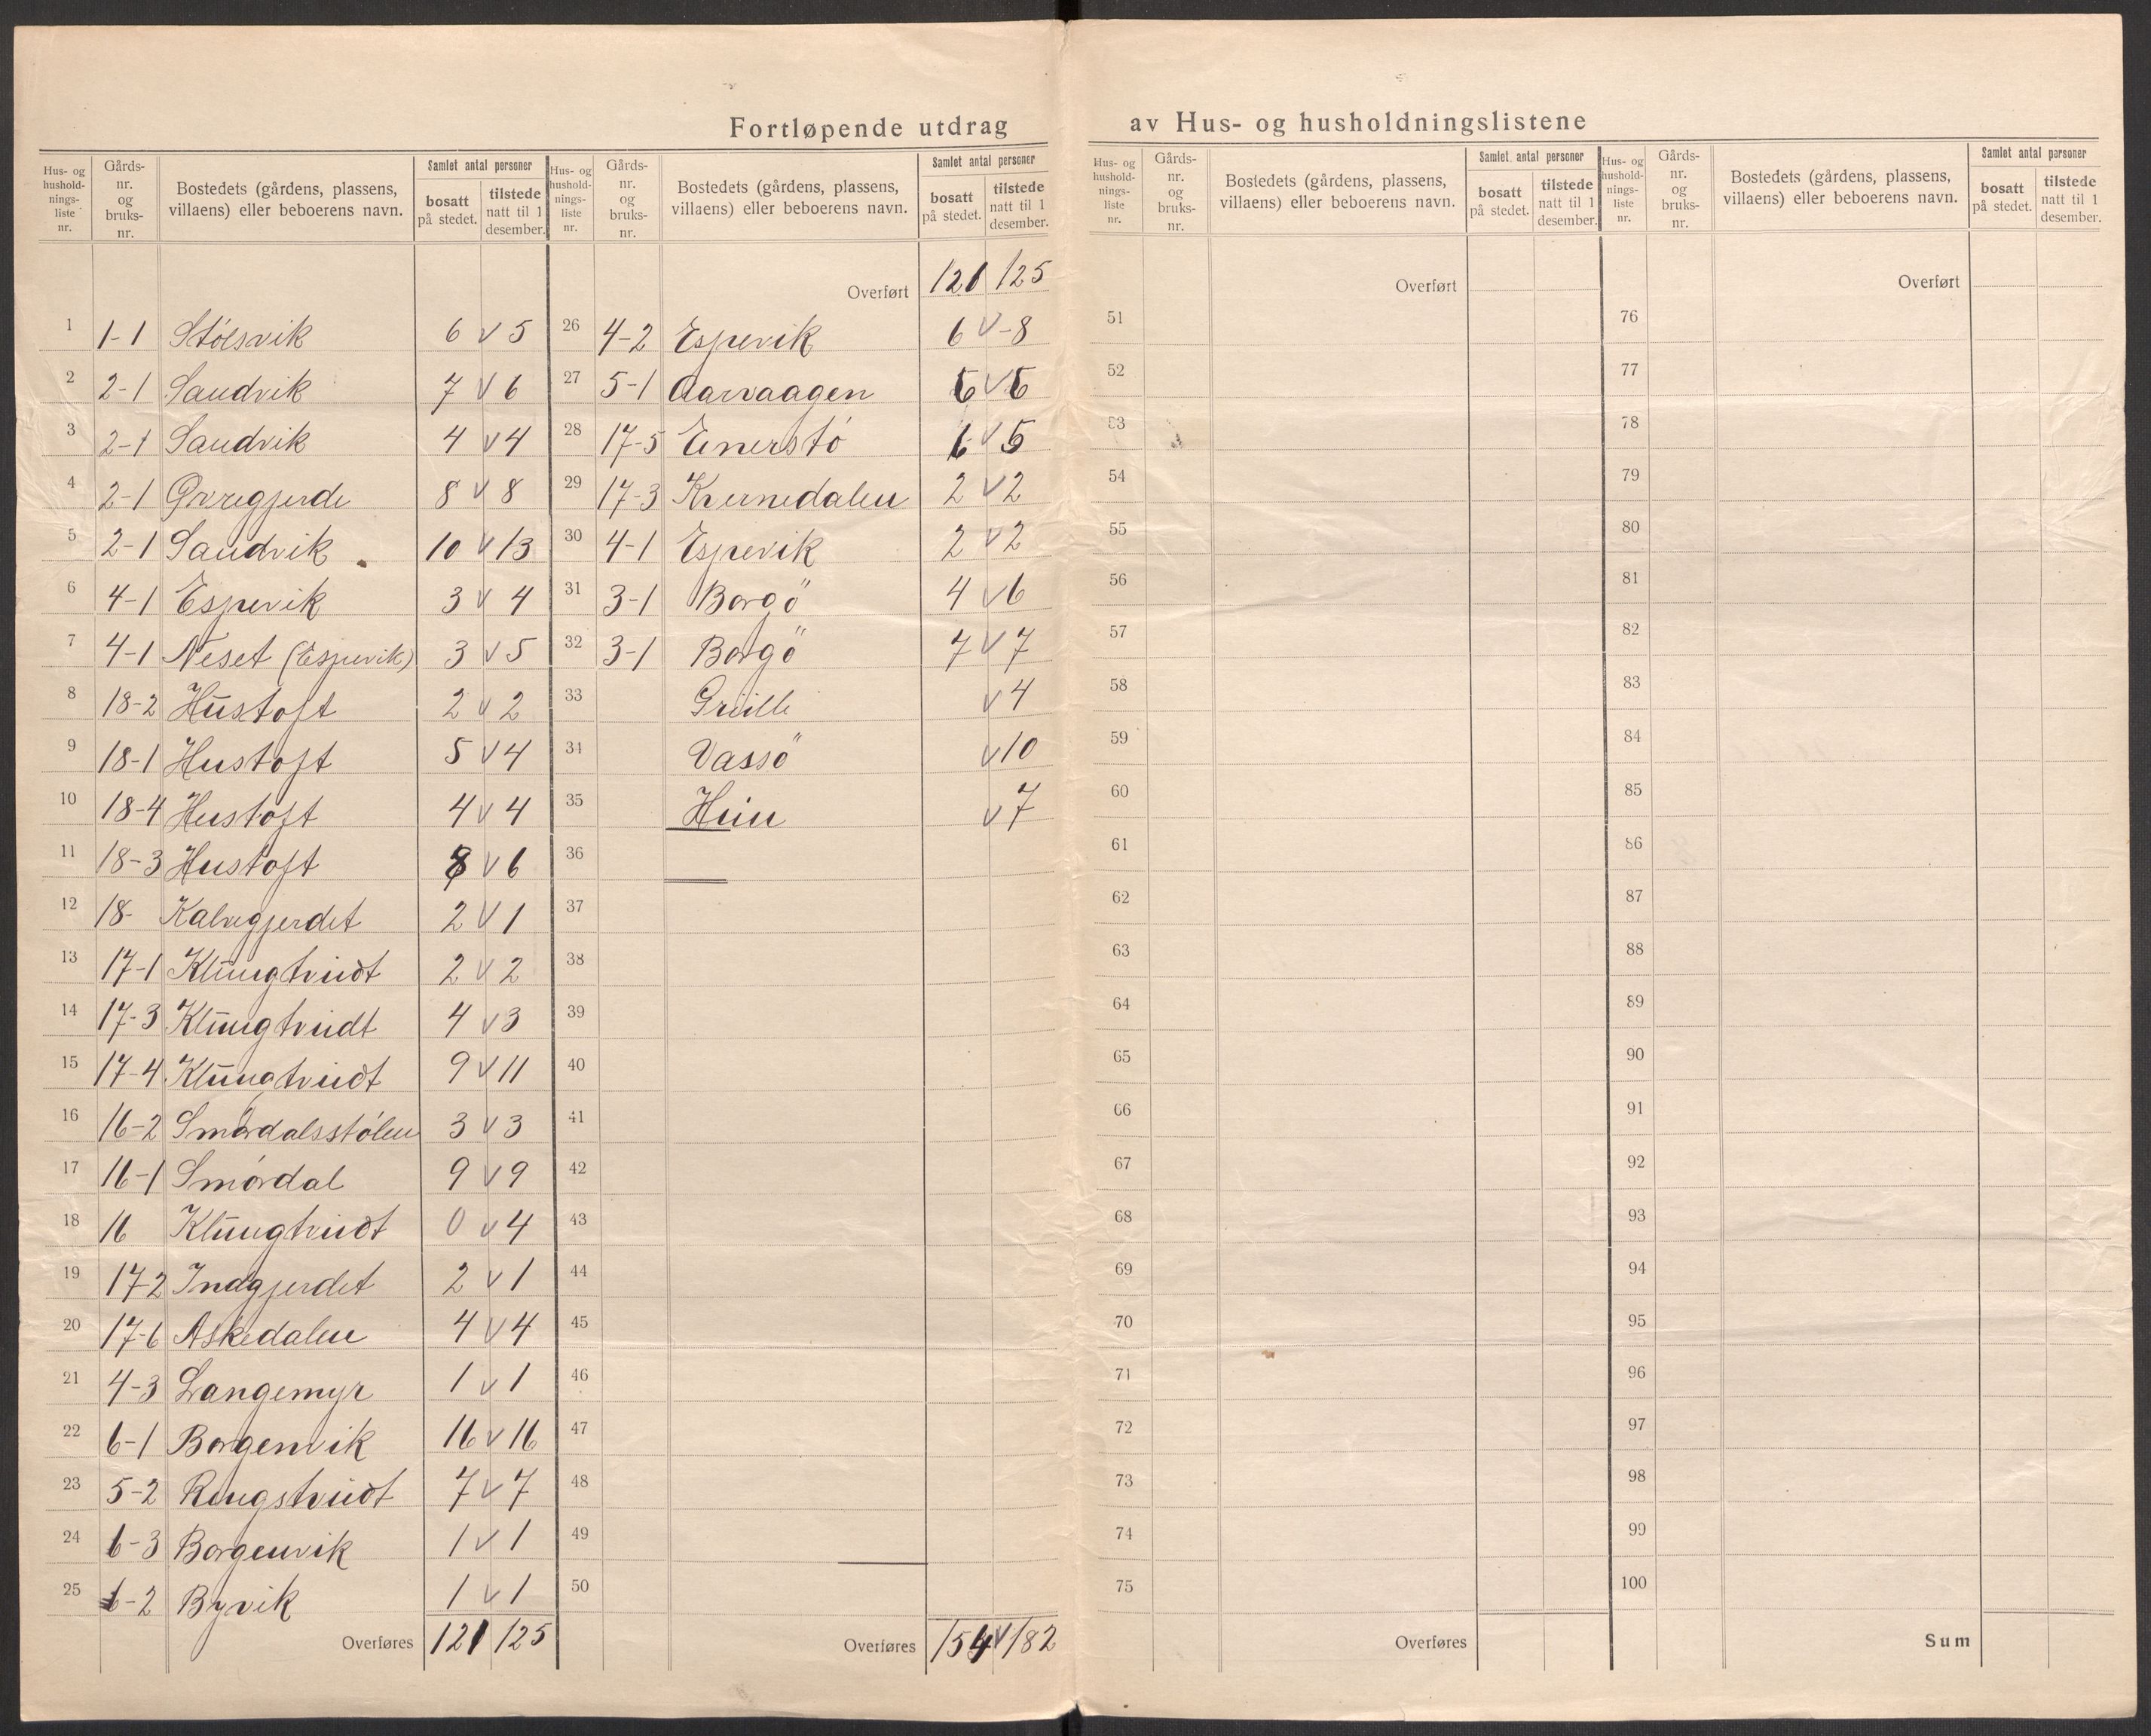 Fortløpende utdrag av Hus- og husholdningslistene
Hus- og hushold-nings-liste nr. Gårds-nr. og bruks-nr. Bostedets (gårdens, plassens, villaens) eller beboerens navn. Samlet antal personer bosatt på stedet. tilstede natt til 1 desember.
1 1-1 Stölsvik 6 v 5
2 2-1 Sandvik 7 v 6
3 2-1 Sandvik 4 v 4
4 2-1 8 v 8
5 2-1 Sandvik 10 v 13
6 4-1 Espevik 3 v 4
7 4-1 Neset (Espevik) 3 v 5
8 18-2 Hustoft 2 v 2
9 18-1 Hustoft 5 v 4
10 18-4 Hustoft 4 v 4
11 18-3 Hustoft 8 v 6
12 18- Kalvegjerdet 2 v 1
13 17-1 Klungtvedt 2 v 2
14 17-3 Klungtvedt 4 v 3
15 17-4 Klungtvedt 9 v 11
16 16-2 Smørdalsstölen 3 v 3
17 16-1 Smørdal 9 v 9
18 16 Klungtvedt 0 v 4
19 17-2 Indgjerdet 2 v 1
20 17-6 Askedalen 4 v 4
21 4-3 Langemyr 1 v 1
22 6-1 Borgenvik 16 v 16
23 5-2 Rengstvedt 7 v 7
24 6-3 Borgenvik 1 v 1
25 6-2 Byvik 1 v 1
Overføres 121 125
Hus- og hushold-nings-liste nr. Gårds-nr. og bruks-nr. Bostedets (gårdens, plassens, villaens) eller beboerens navn. Samlet antal personer bosatt på stedet. tilstede natt til 1 desember.
Overført 121 125
26 4-2 Espevik 6 v-8
27 5-1 Aarvaagen v
28 17-5 Enerstö 6 v 5
29 17-3 Kvernedalen 2 v 2
30 4-1 Espevik 2 v 2
31 3-1 Borgö 4 v 6
32 3-1 Borgö 7 v 7
33 v 4
34 Vassö v 10
35 v 7
36
37
38
39
40
41
42
43
44
45
46
47
48
49
50
Overføres 154 v 182
Hus- og hushold-nings-liste nr. Gårds-nr. og bruks-nr. Bostedets (gårdens, plassens, villaens) eller beboerens navn. Samlet antal personer bosatt på stedet. tilstede natt til 1 desember.
Overført
51
52
53
54
55
56
57
58
59
60
61
62
63
64
65
66
67
68
69
70
71
72
73
74
75
Overføres
Hus- og hushold-nings-liste nr. Gårds-nr. og bruks-nr. Bostedets (gårdens, plassens, villaens) eller beboerens navn. Samlet antal personer bosatt på stedet. tilstede natt til 1 desember.
Overført
76
77
78
79
80
81
82
83
84
85
86
87
88
89
90
91
92
93
94
95
96
97
98
99
100
Sum